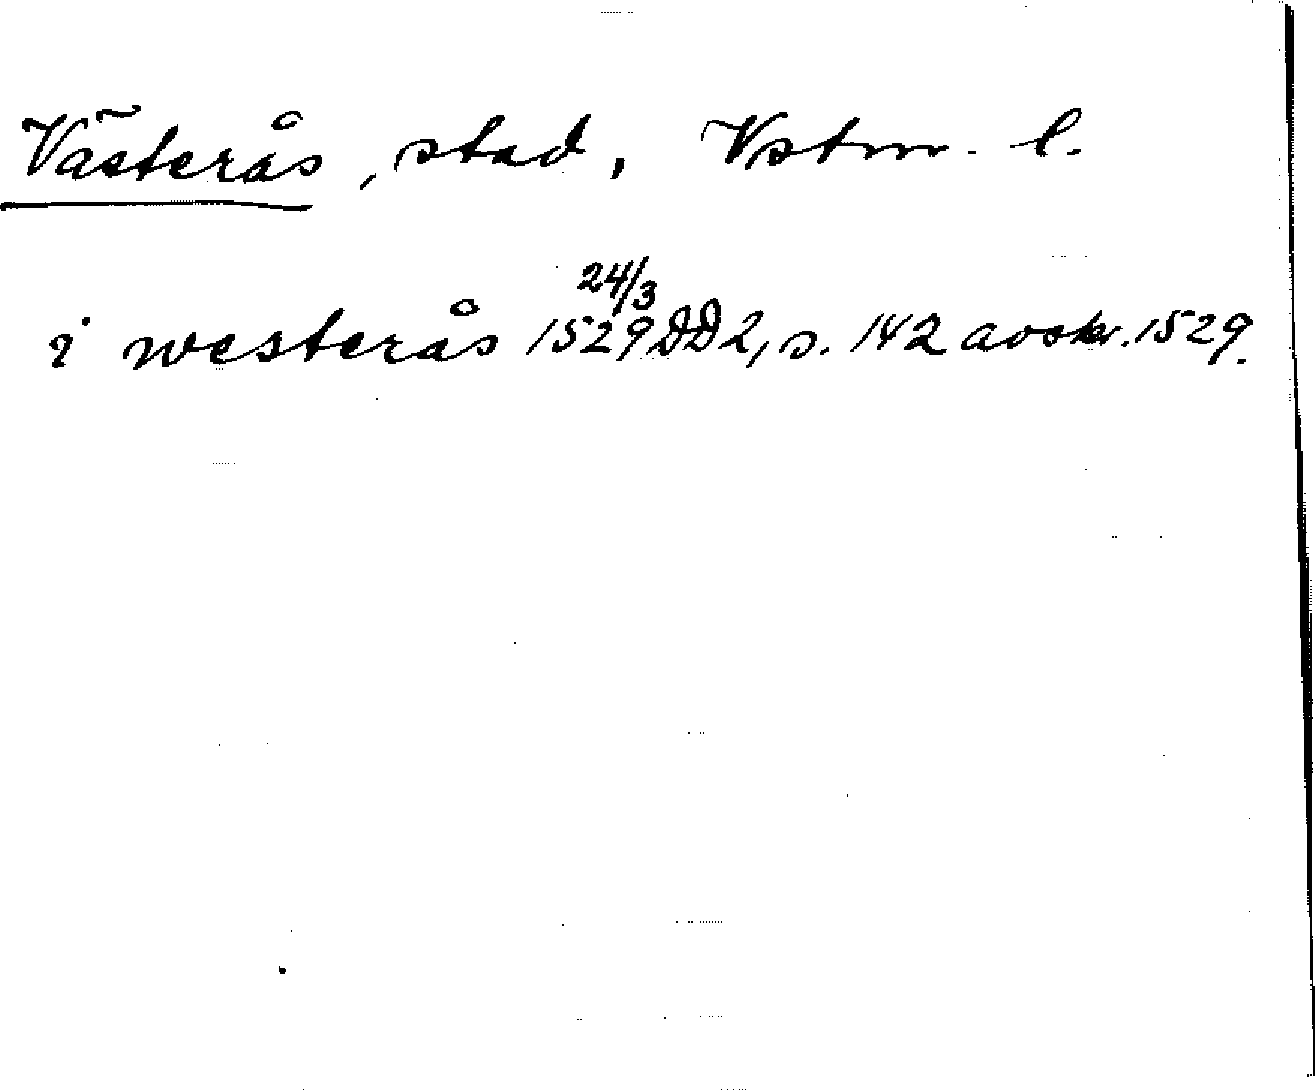 Västerås, stad, Vstm. l.
24/3
i westerås 1529 DD2, s. 142 avskr. 1529.